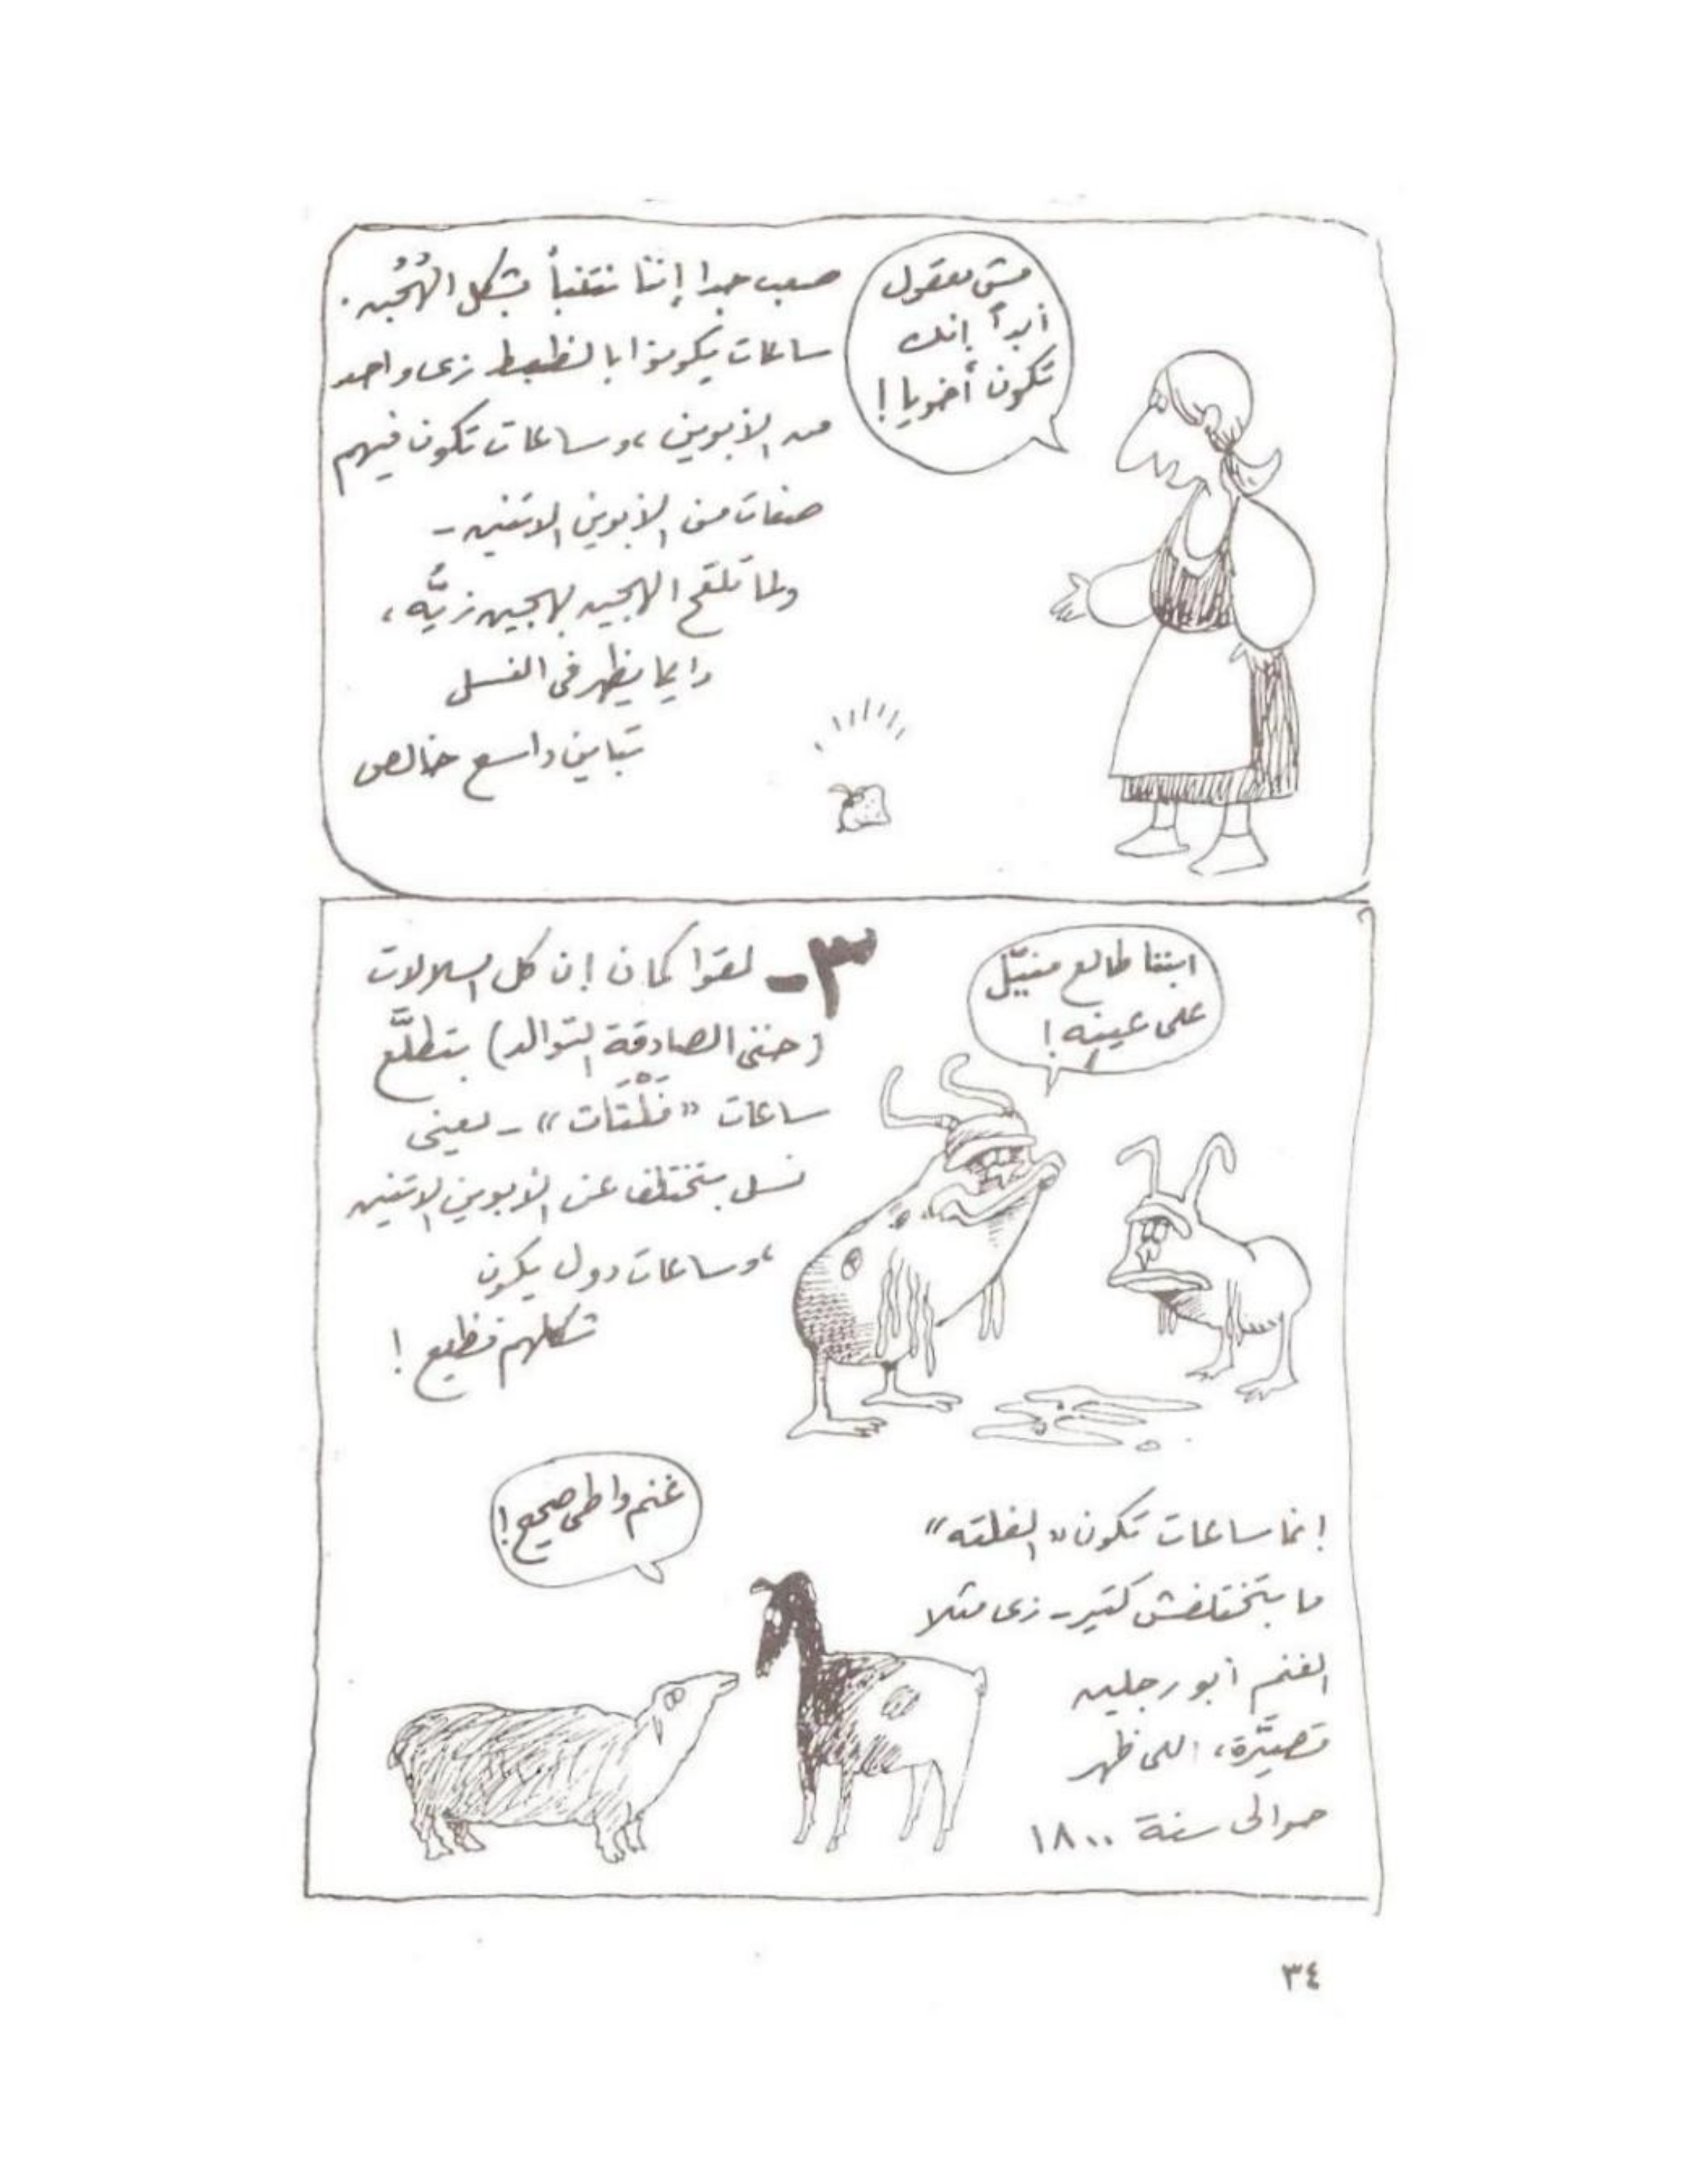 مش معقول
أبداً إنك
تكون أخويا!
صعب جدا إننا نتنبأ بشكل الهُجُن.
ساعات يكونوا بالظبط زى واحد
من الأبوين، وساعات تكون فيهم
صفات من الأبوين الاتنين -
ولما تلقح الهجين بهجين زيُّه،
دايما يظهر فى النسل
تباين واسع خالص
ابننا طالع منيّل
على عينه!
٣- لقوا كمان إن كل السلالات
(حتى الصادقة التوالد) بتطلَّع
ساعات «فَلْتَات» - يعنى
نسل بتختلف عن الأبوين الاتنين
، وساعات دول يكون
شكلهم فظيع!
غنم واطى صحيح!
إنما ساعات تكون «الفلته»
ما بتختلفش كتير - زى مثلا
الغنم أبو رجلين
قصيَّرة، اللى ظهر
حوالى سنة ١٨٠٠
٣٤